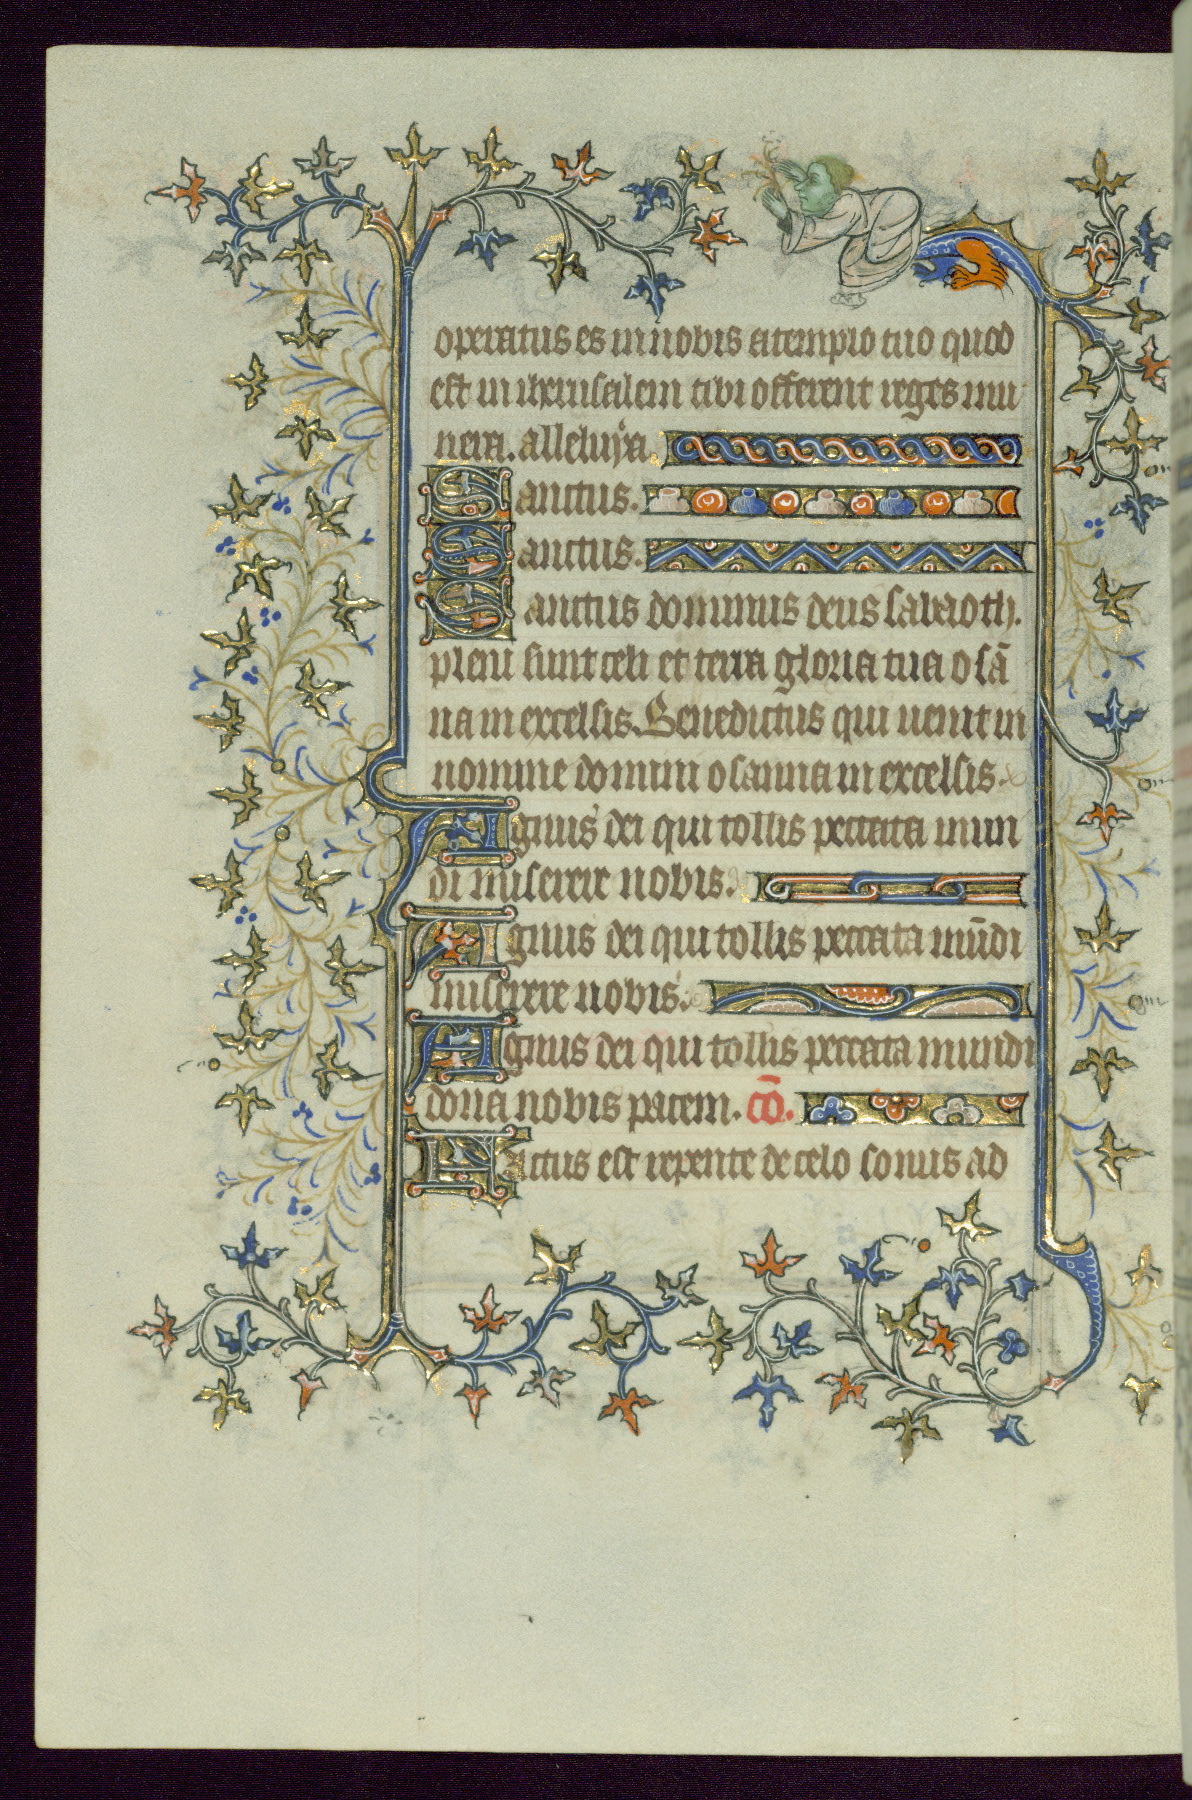 operatus es in nobis a templo tuo quod
est in iherusalem tibi offerent reges mu
nera. alleluya.
Sanctus.
Sanctus.
Sanctus dominus deus sabaoth.
pleni sunt celi et terra gloria tua o sã
na in excelsis. Benedictus qui uenit in
nomine domini osanna in excelsis.
Agnus dei qui tollis peccata mun
di miserere nobis.
Agnus dei qui tollis peccata mũdi
miserere nobis.
Agnus dei qui tollis peccata mundi
dona nobis pacem. cõ.
Factus est repente de celo sonus ad